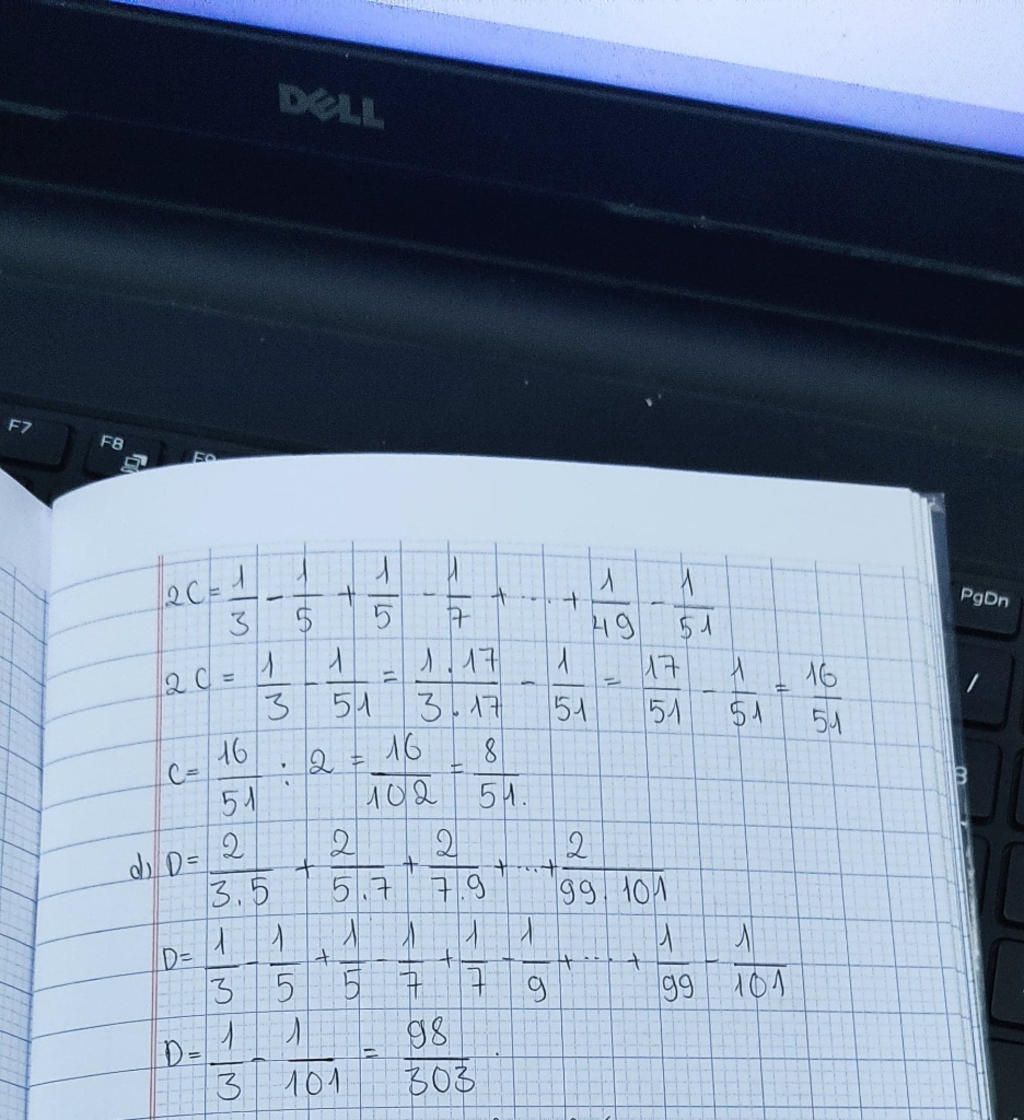 DELL
F7
F8
F9
PgDn
/
2C = 1/3 - 1/5 + 1/5 - 1/7 + ... + 1/49 - 1/51
2C = 1/3 - 1/51 = 1.17/3.17 - 1/51 = 17/51 - 1/51 = 16/51
C = 16/51 : 2 = 16/102 = 8/51.
d) D = 2/3.5 + 2/5.7 + 2/7.9 + ... + 2/99.101
D = 1/3 - 1/5 + 1/5 - 1/7 + 1/7 - 1/9 + ... + 1/99 - 1/101
D = 1/3 - 1/101 = 98/303.